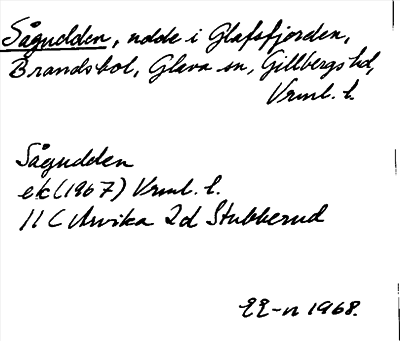 Sågudden, udde i Glafsfjorden,
Brandsbol, Glava sn, Gillbergs hd,
Vrml. l.
Sågudden
ek (1967) Vrml. l.
11 C Arvika 2d Stubberud
1968.